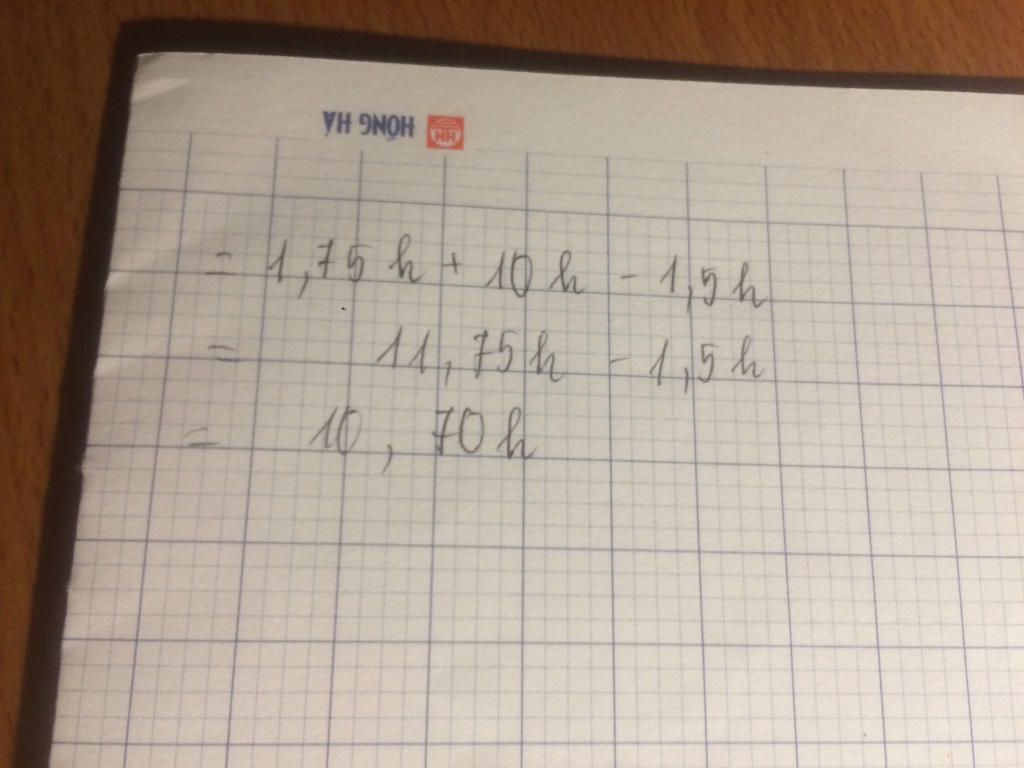 HỒNG HÀ HH
= 1,75 h + 10 h - 1,5 h
= 11,75 h - 1,5 h
= 10,70 h